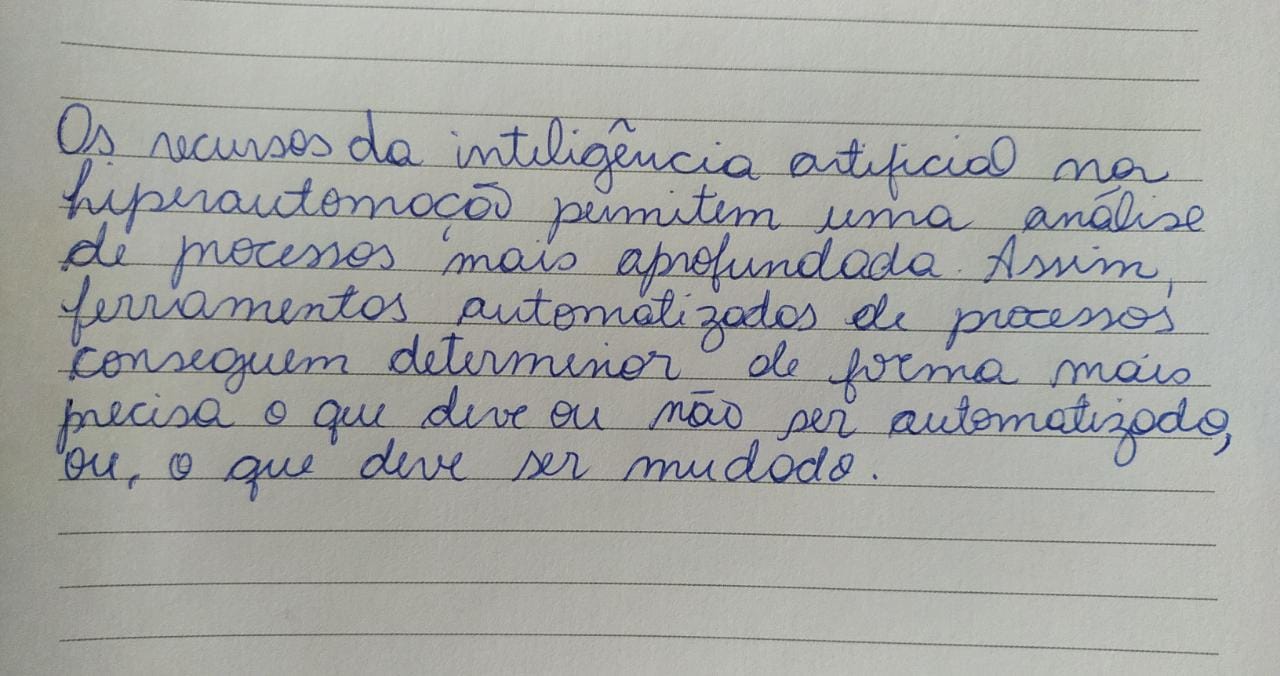 Os recursos da inteligência artificial na
hiperautomoção permitem uma análise
de processos mais aprofundada. Assim,
ferramentas automatizadas de processos
conseguem determinar de forma mais
precisa o que deve ou não ser automatizado,
ou, o que deve ser mudado.